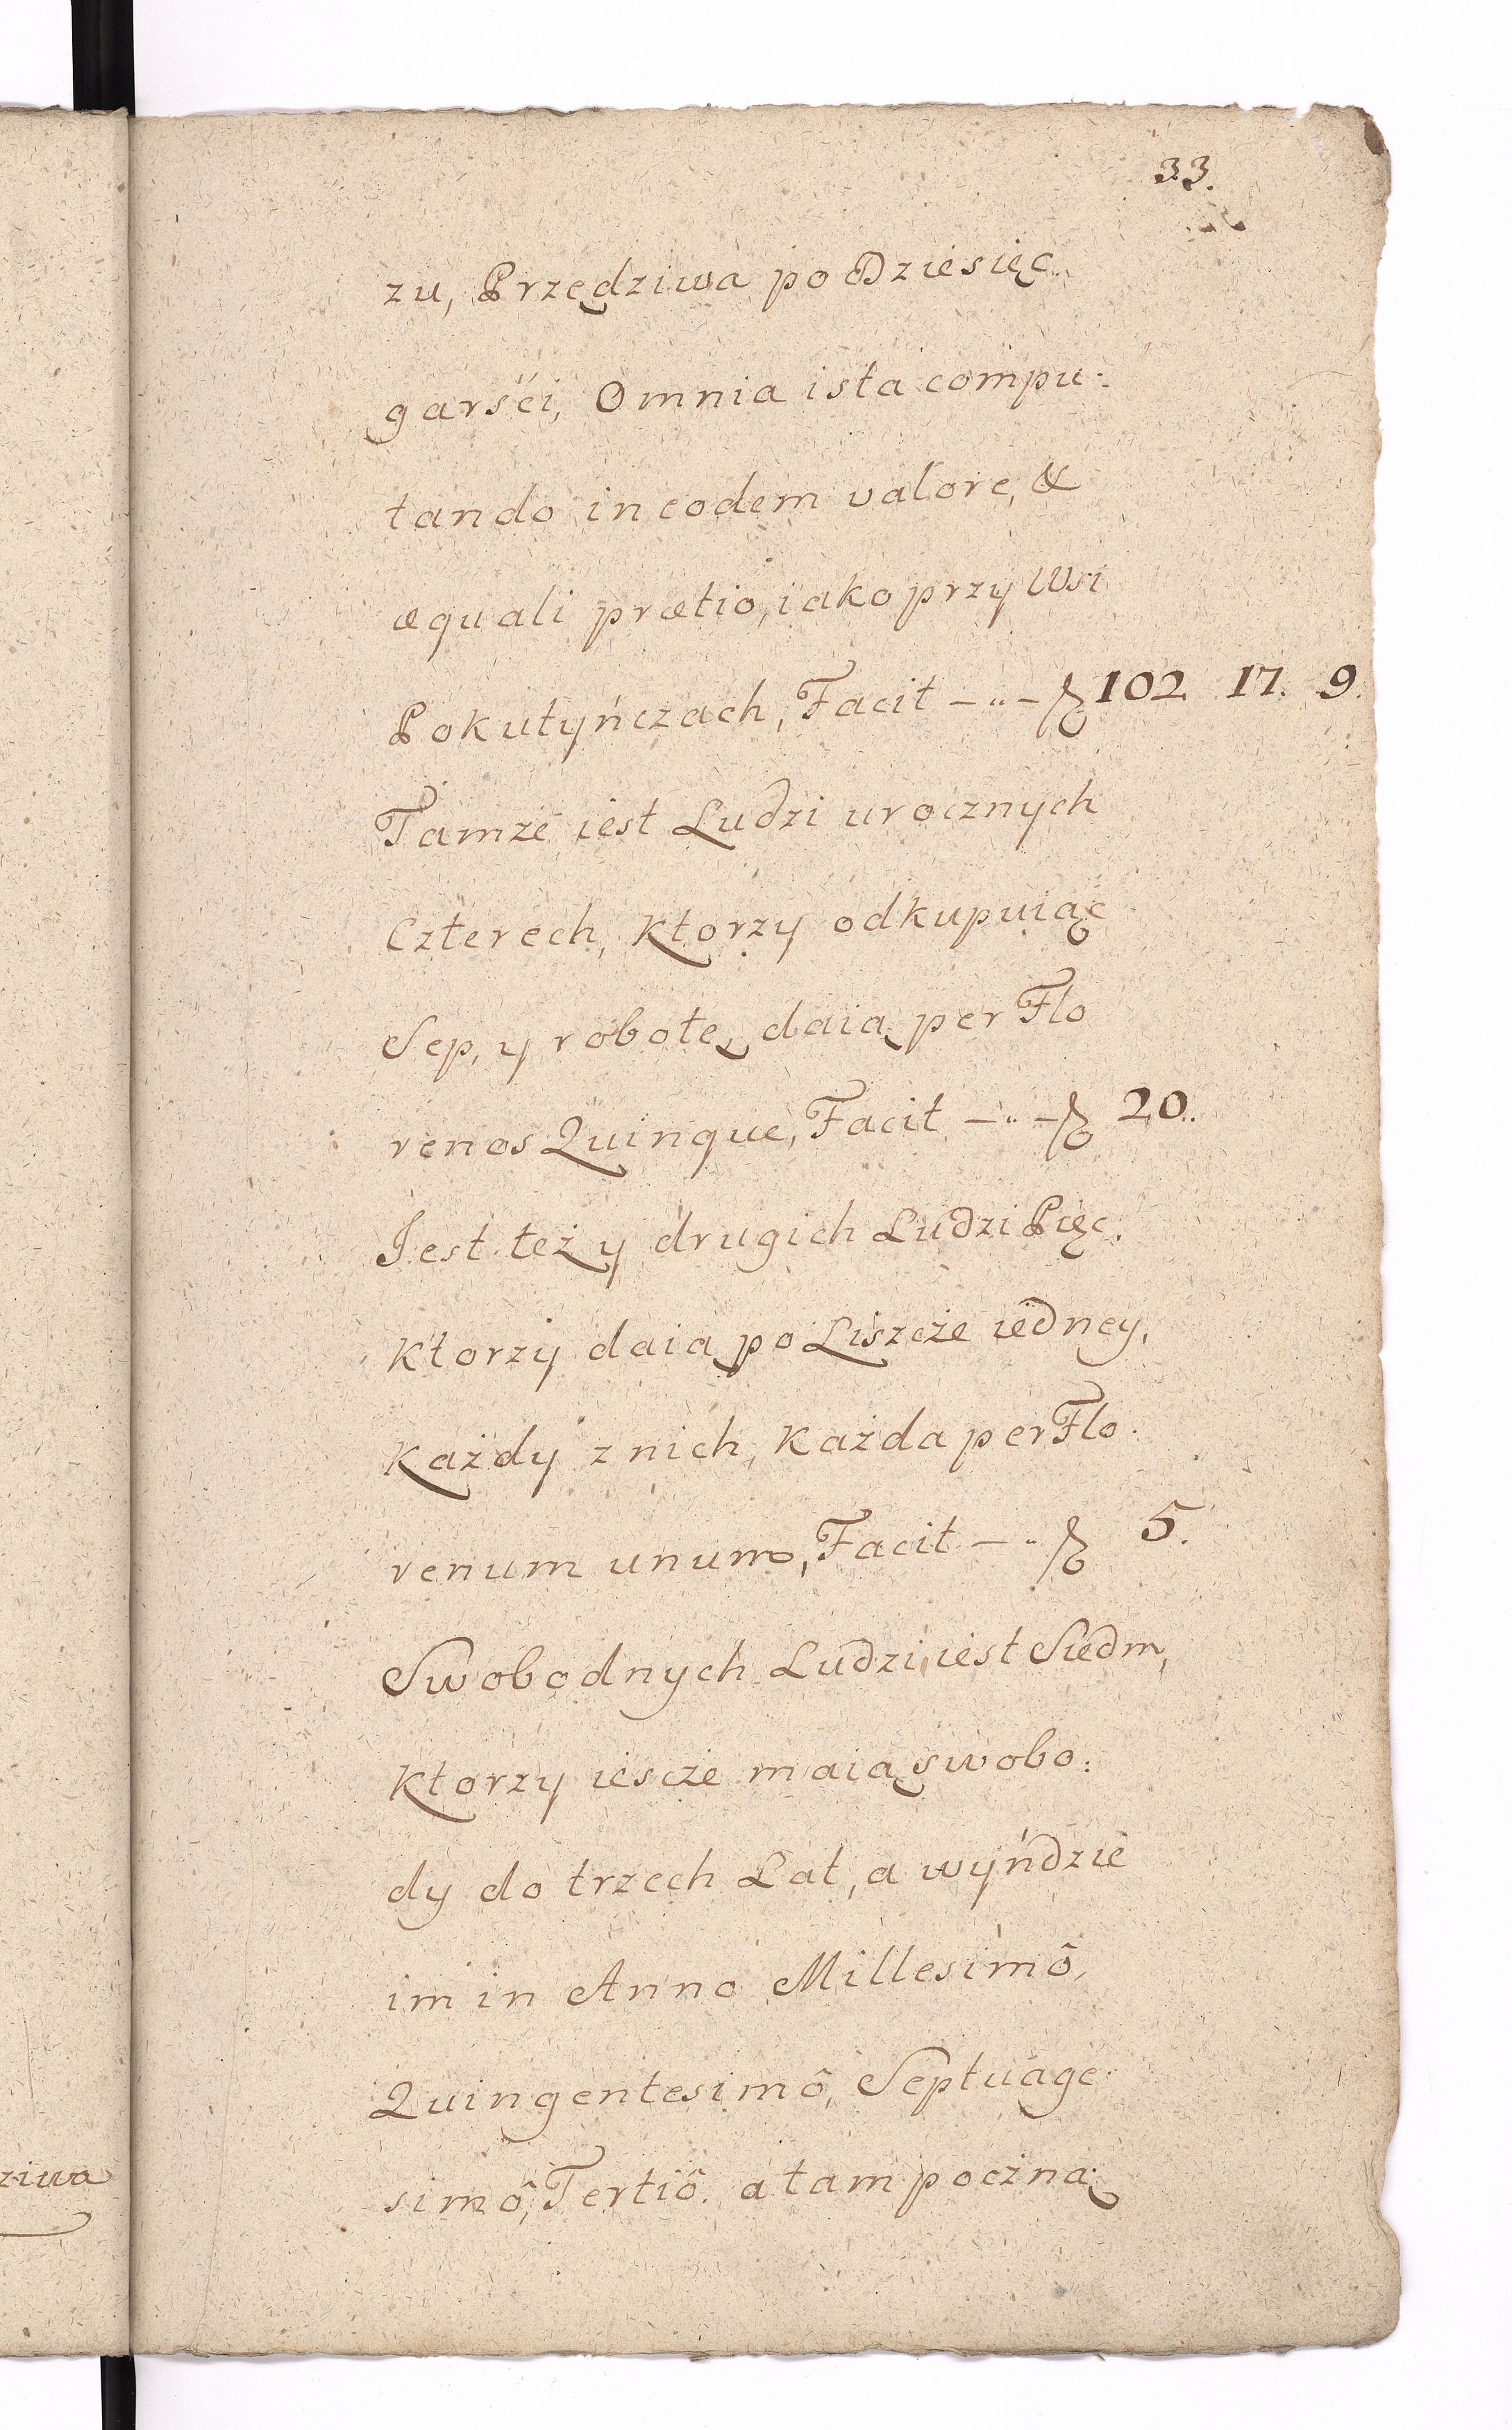 33.
zu, Przędziwa po Dziesięc
garści, Omnia ista compu:
tando in eodem valore, &
æquali prætio, iako przy Wsi
Pokutyńczach, Facit 102 17. 9.
Tamże iest Ludzi urocznych
Czterech, Ktorzy odkupuiąc
Sep, y robotę, daią per Flo
renos Quinque, Facit 20.
Jest też y drugich Ludzi Pięc.
Ktorzy daią po Liszcze iedney,
Każdy z nich, Każda per Flo.
renum unum, Facit 5.
Swobodnych Ludzi iest Siedm,
Ktorzy iescze maią swobo:
dy do trzech Lat, a wyńdzie
im in Anno Millesimô,
Quingentesimô, Septuage
simô, Tertiô. a tam poczną
ziwa